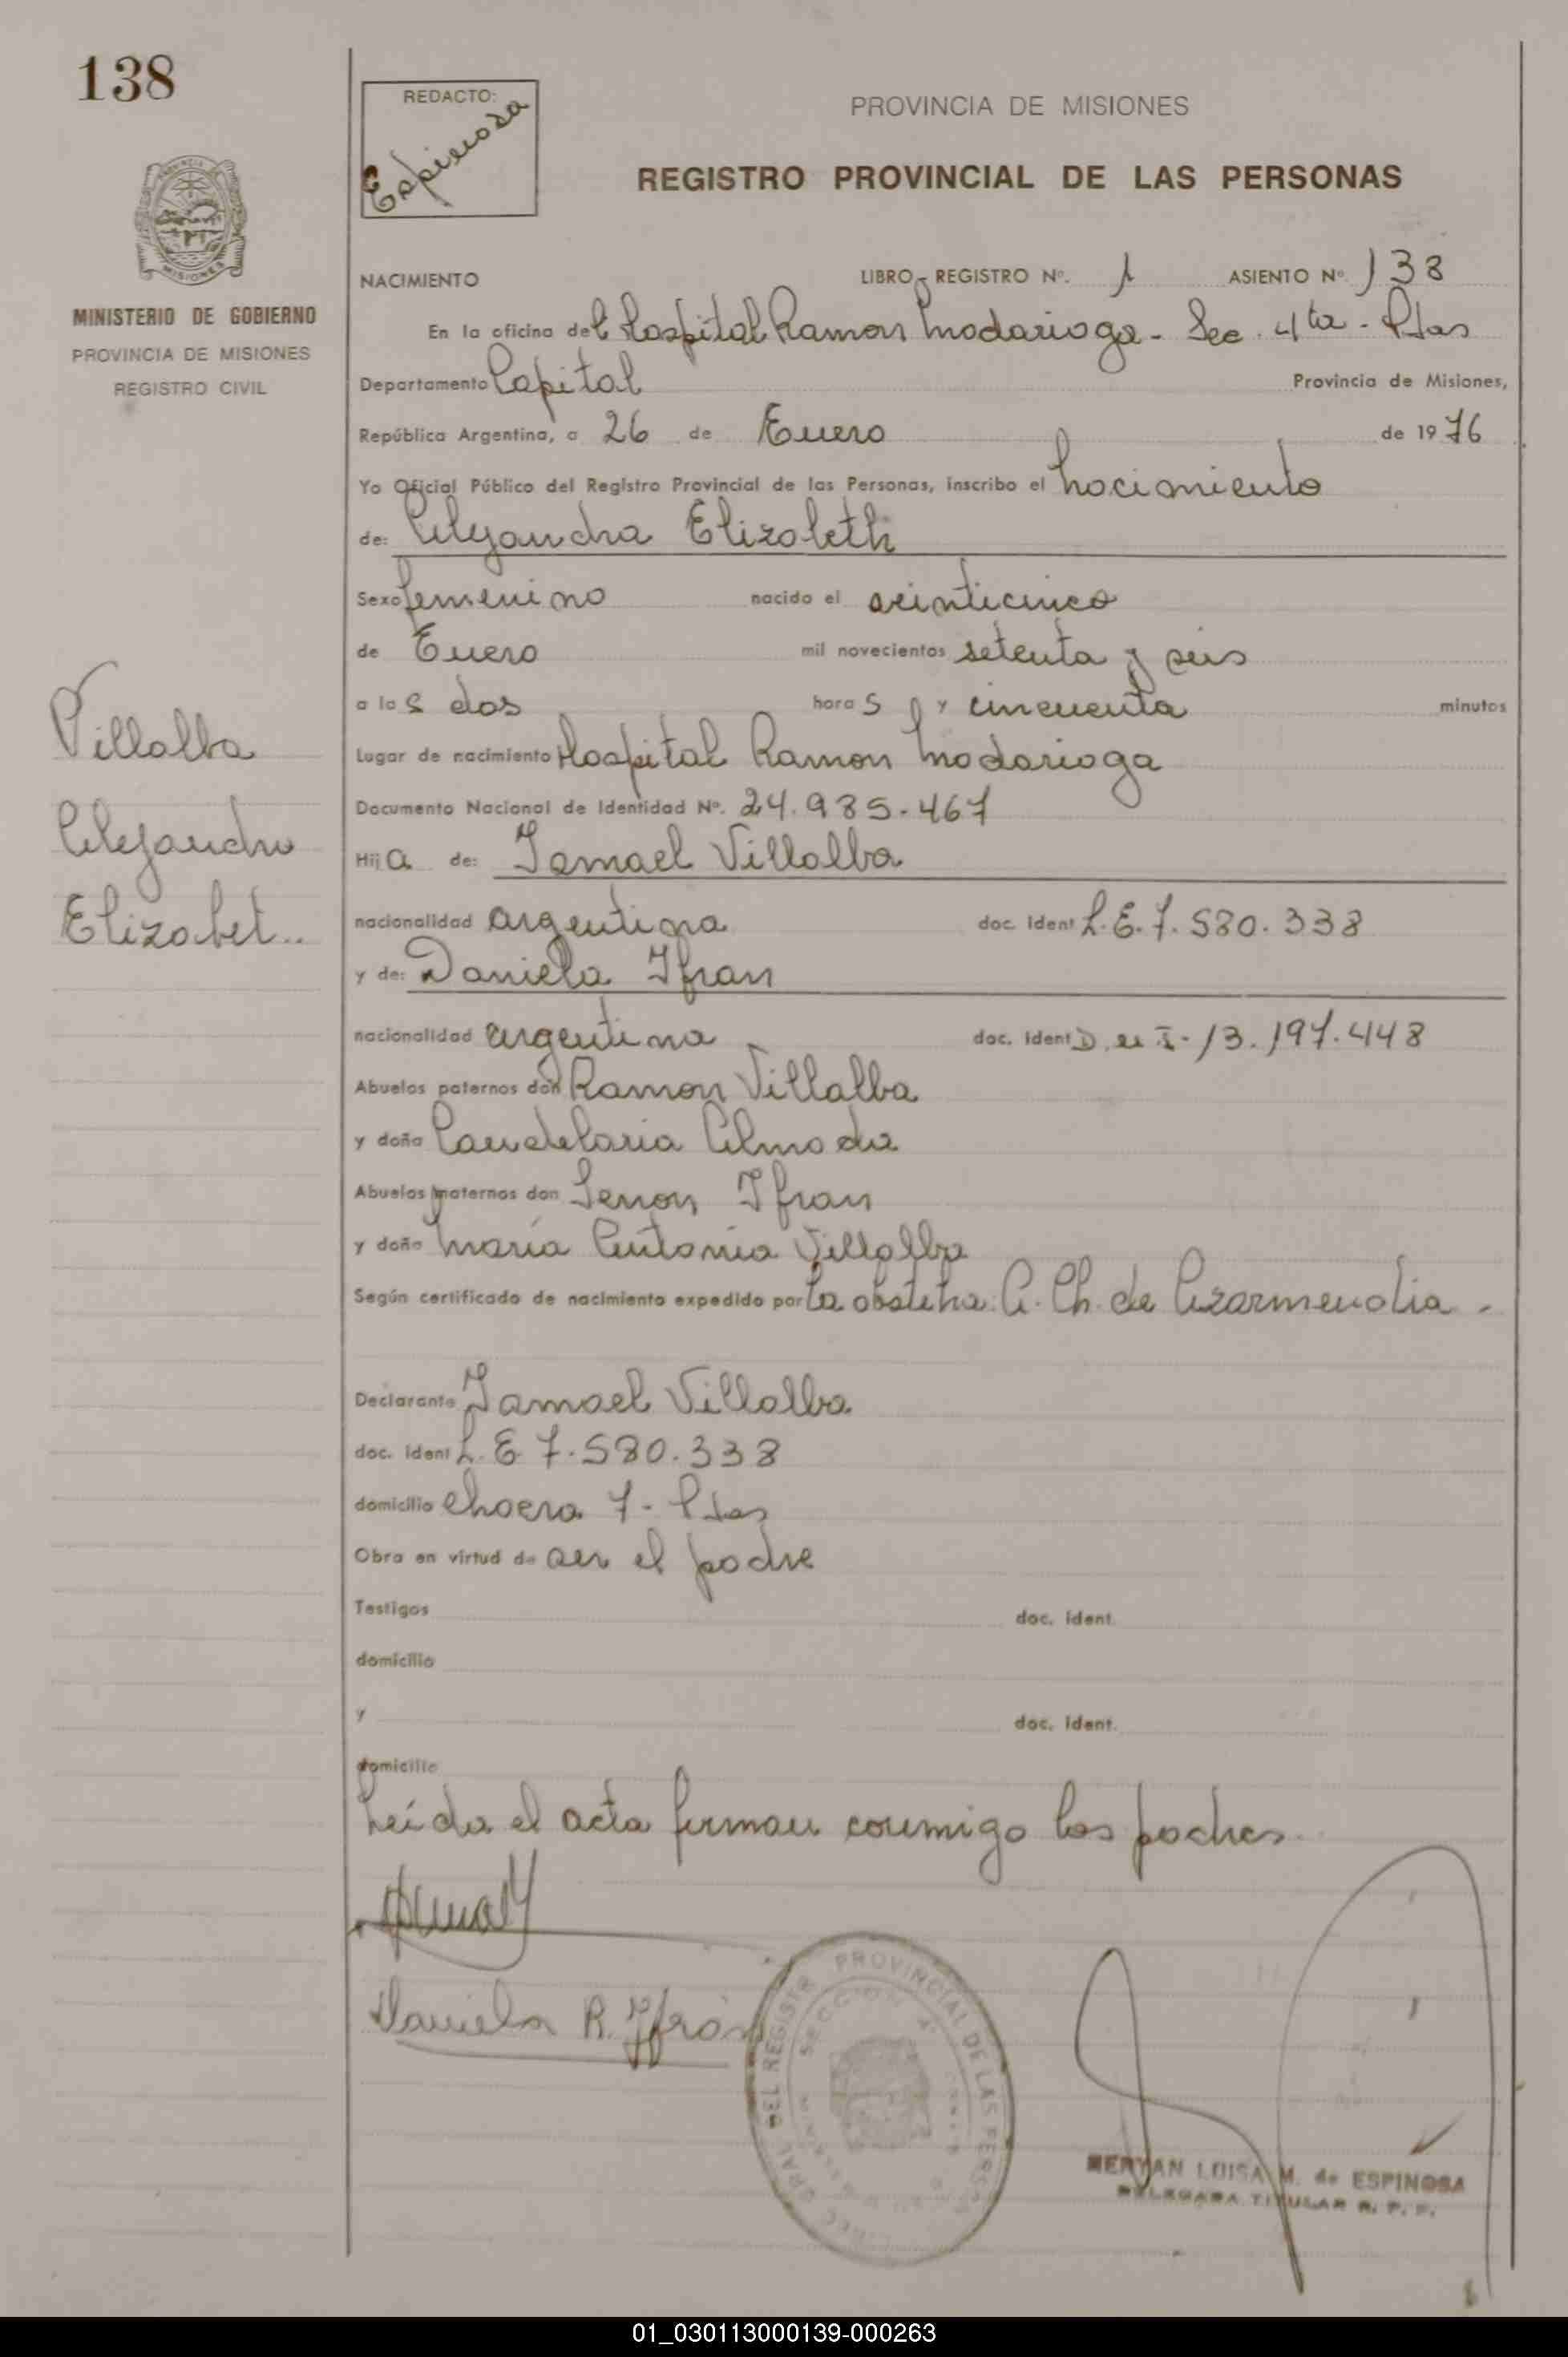 138
REDACTO:
Espinosa
PROVINCIA DE MISIONES
REGISTRO PROVINCIAL DE LAS PERSONAS
MISIONES
MINISTERIO DE GOBIERNO
PROVINCIA DE MISIONES
REGISTRO CIVIL
NACIMIENTO LIBRO - REGISTRO Nº. 1 ASIENTO Nº. 138
En la oficina del Hospital Ramon Madariaga - Sec. 4ta - Pdas
Departamento Capital Provincia de Misiones,
República Argentina, a 26 de Enero de 1976
Yo Oficial Público del Registro Provincial de las Personas, inscribo el nacimiento
de: Alejandra Elizabeth
Sexo femenino nacido el veinticinco
de Enero mil novecientos setenta y seis
a las dos horas y cincuenta minutos
Lugar de nacimiento Hospital Ramon Madariaga
Documento Nacional de Identidad Nº. 24.985.467
Hija de: Ismael Villalba
nacionalidad argentina doc. Ident L.E. 7.580.338
y de: Daniela Ifran
nacionalidad argentina doc. Ident D.N.I. 13.197.448
Abuelos paternos don Ramon Villalba
y doña Candelaria Almada
Abuelos maternos don Senon Ifran
y doña María Antonia Villalba
Según certificado de nacimiento expedido por la obstetra: A. Ch. de Azarmendia -
Villalba
Alejandra
Elizabet..
Declarante Ismael Villalba
doc. Ident L.E 7.580.338
domicilio chacra 7 - Pdas
Obra en virtud de ser el padre
Testigos doc. Ident.
domicilio
y doc. Ident.
domicilio
Leída el acta firman conmigo los padres.
Daniela R. Ifrán
PROVINCIAL DE LAS PERS
SECCION 4ª
DEL REGISTR
MERYAN LUISA M. de ESPINOSA
DELEGADA TITULAR R. P. P.
01_030113000139-000263